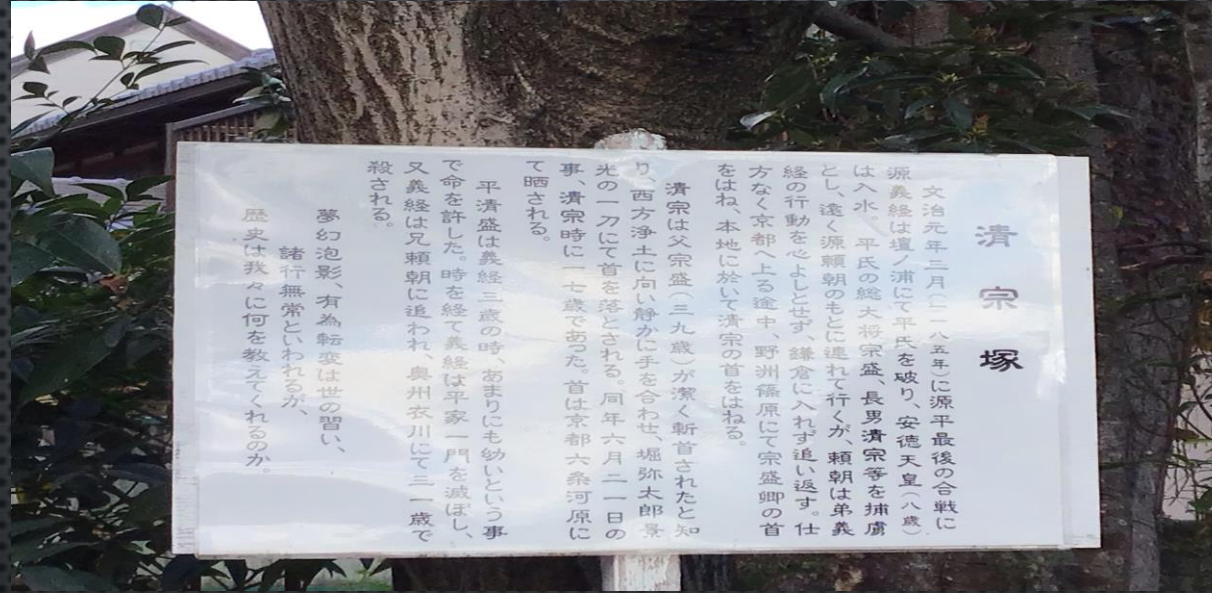 清宗塚
文治元年三月(一一八五年)に源平最後の合戦に
源義経は壇ノ浦にて平氏を破り、安徳天皇(八歳)
は入水。平氏の総大将宗盛、長男清宗等を捕虜
とし、遠く源頼朝のもとに連れて行くが、頼朝は弟義
経の行動を心よしとせず、鎌倉に入れず追い返す。仕
方なく京都へ上る途中、野洲篠原にて宗盛卿の首
をはね、本地に於いて清宗の首をはねる。
清宗は父宗盛(三九歳)が潔く斬首されたと知
り、西方浄土に向い静かに手を合わせ、堀弥太郎景
光の一刀にて首を落とされる。同年六月二一日の
事、清宗時に一七歳であった。首は京都六条河原に
て晒される。
平清盛は義経三歳の時、あまりにも幼いという事
で命を許した。時を経て義経は平家一門を滅ぼし、
又義経は兄頼朝に追われ、奥州衣川にて三一歳で
殺される。
夢幻泡影、有為転変は世の習い、
諸行無常といわれるが、
歴史は我々に何を教えてくれるのか。